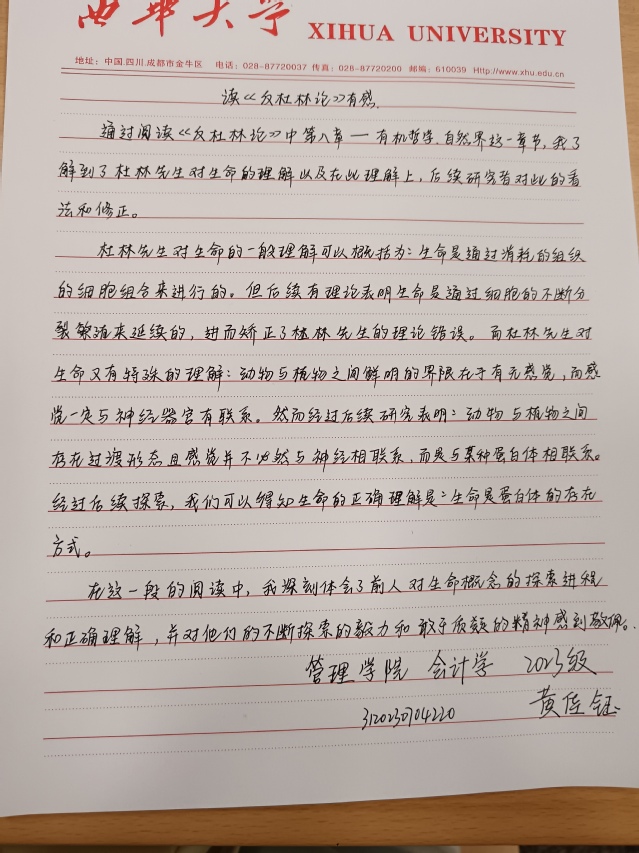 西华大学 XIHUA UNIVERSITY
地址：中国.四川.成都市金牛区 电话：028-87720037 传真：028-87720200 邮编：610039 Http://www.xhu.edu.cn
读《反杜林论》有感.
通过阅读《反杜林论》中第八章一有机哲学.自然界这一章节，我了
解到了杜林先生对生命的理解以及在此理解上，后续研究者对此的看
法和修正。
杜林先生对生命的一般理解可以概括为：生命是通过消耗的组织
的细胞组合来进行的。但后续有理论表明生命是通过细胞的不断分
裂繁殖来延续的，进而矫正了杜林先生的理论错误。而杜林先生对
生命又有特殊的理解：动物与植物之间鲜明的界限在于有无感觉，而感
觉一定与神经器官有联系。然而经过后续研究表明：动物与植物之间
存在过渡形态且感觉并不必然与神经相联系，而是与某种蛋白体相联系。
经过后续探索，我们可以得知生命的正确理解是：生命是蛋白体的存在
方式。
在这一段的阅读中，我深刻体会了前人对生命概念的探索进程
和正确理解，并对他们的不断探索的毅力和敢于质疑的精神感到敬佩。
管理学院 会计学 2023级
3120230704220 黄佳钰